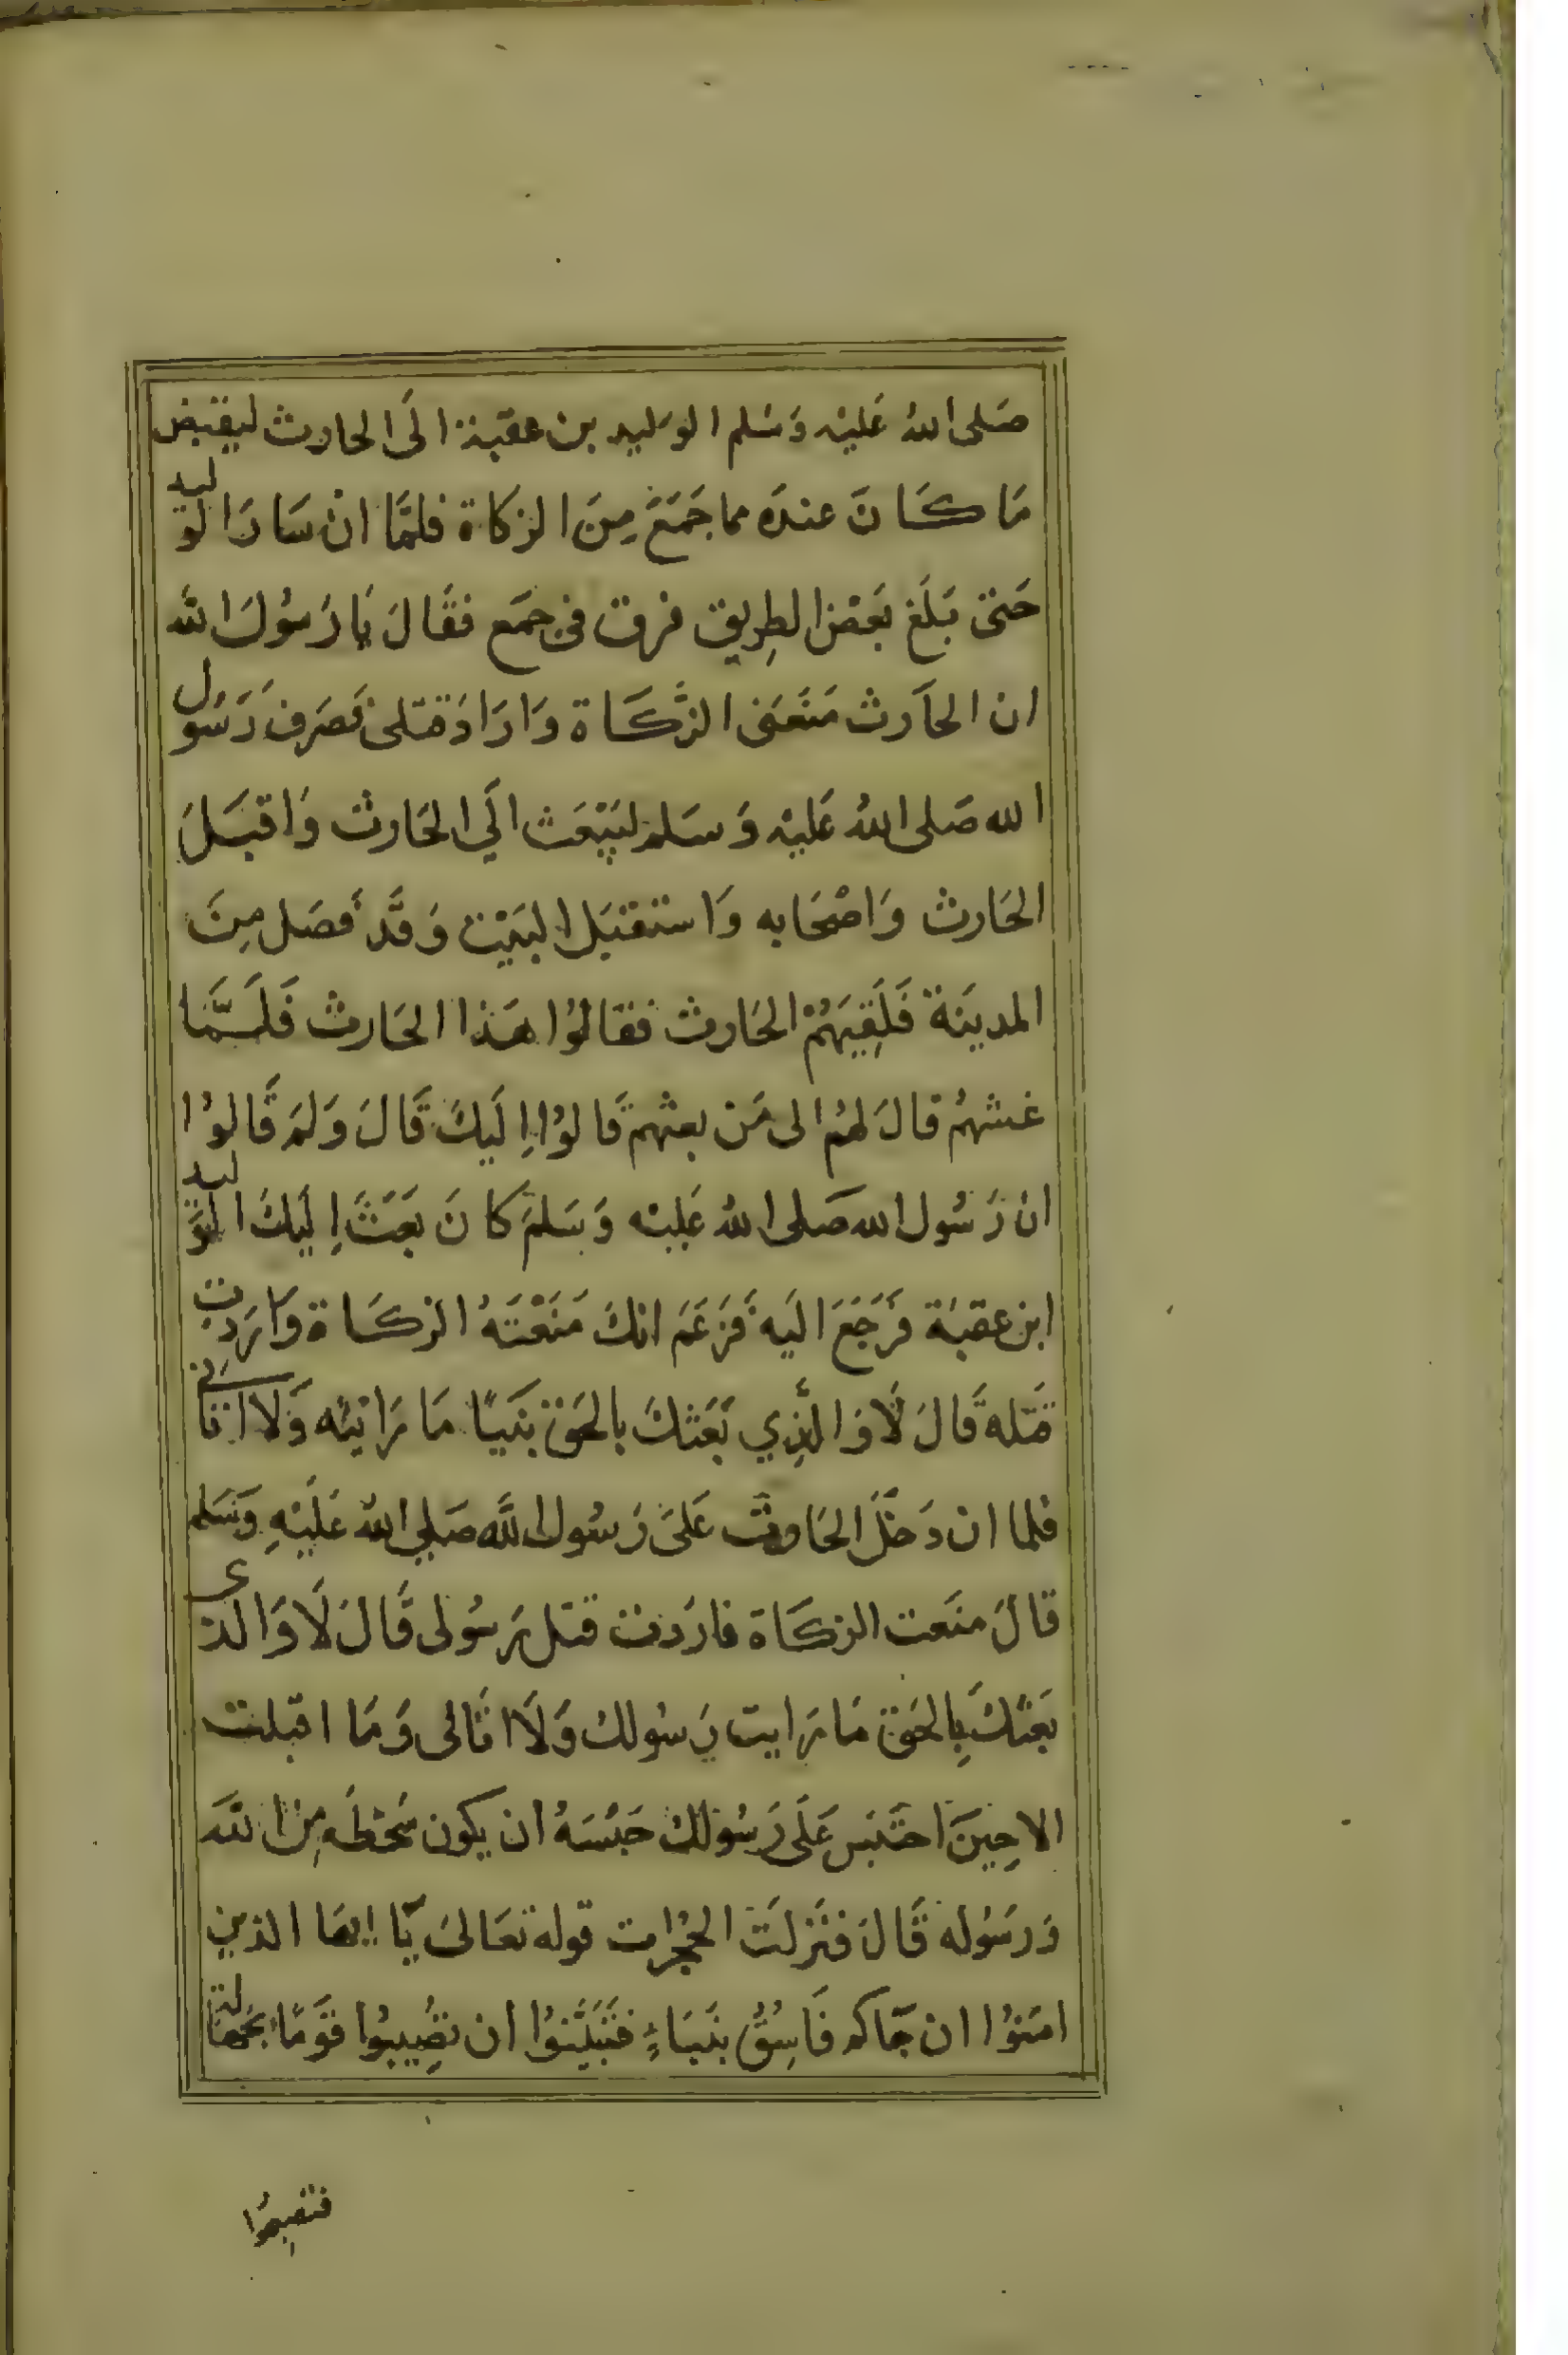 صَلى اللهُ عَليْه وَسَلم الوَليد بن عقبة الَى الحارث ليقبض
مَا كَانَ عندَه مما جَمَعَ مِنَ الزكاة فلمَّا انْ سَارَ الوليد
حَتى بَلَغ بَعَضَ الطِريق فرق فرجَع فقَالَ يَا رَسُولَ الله
ان الحَارث مَنَعَنى الزَّكَاة وَارَادَ قتلى فصَرف رَسُول
الله صَلى اللهُ عَليْه وَسَلم لبَيْعَث الَي الحَارث وَاقبَلَ
الحَارث وَاصْحَابه وَاستقبَل البَيْت وَقَد فصَل مِنَ
المدينَة فَلَقِيَهُمْ الحَارث فقالوُا هَذا الحَارث فَلَمَّا
غشهُم قالَ لهُم الى مَن بعثهم قَالوُا اِليكَ قَالَ وَلمَ قَالوُا
ان رَسُول الله صَلى اللهُ عَليْه وَسَلمَ كانَ بَعَثَ اِليْكَ الوَليد
ابن عقبَة فرَجَعَ اليَه فَزَعَمَ انكَ مَنَعْتَهُ الزكَاة وَارَدت
قَتله قَالَ لَا وَالَّذِي بَعَثكَ بالحَق نبَيًا مَا رَايته وَلَا اتانى
فلما ان دَخَلَ الحَارث عَلىَ رَسُول اللَّه صَلي اللهُ عَلَيْهِ وَسَلم
قالَ منَعت الزكَاة فاردَت قتل رَسُولى قَالَ لَا وَالذى
بَعثكَ بِالحَق مَا رَايت رَسُولك وَلَا اتَانى وَمَا اقبلت
الا حِينَ احتَبَس عَلَى رَسُولكَ حَبْسَهُ ان يكون سَخطَه مِنَ اللَّه
وَرَسُوله قَالَ فنَزلَت الحُجرات قوله تعَالىَ يَا ايهَا الذين
امَنوُا ان جَاكم فَاسِقٌ بنَبَاءٍ فتَبَيَّنوُا ان تصُيِبوُا قَومًا بجَهالة
فتصبِحُوا